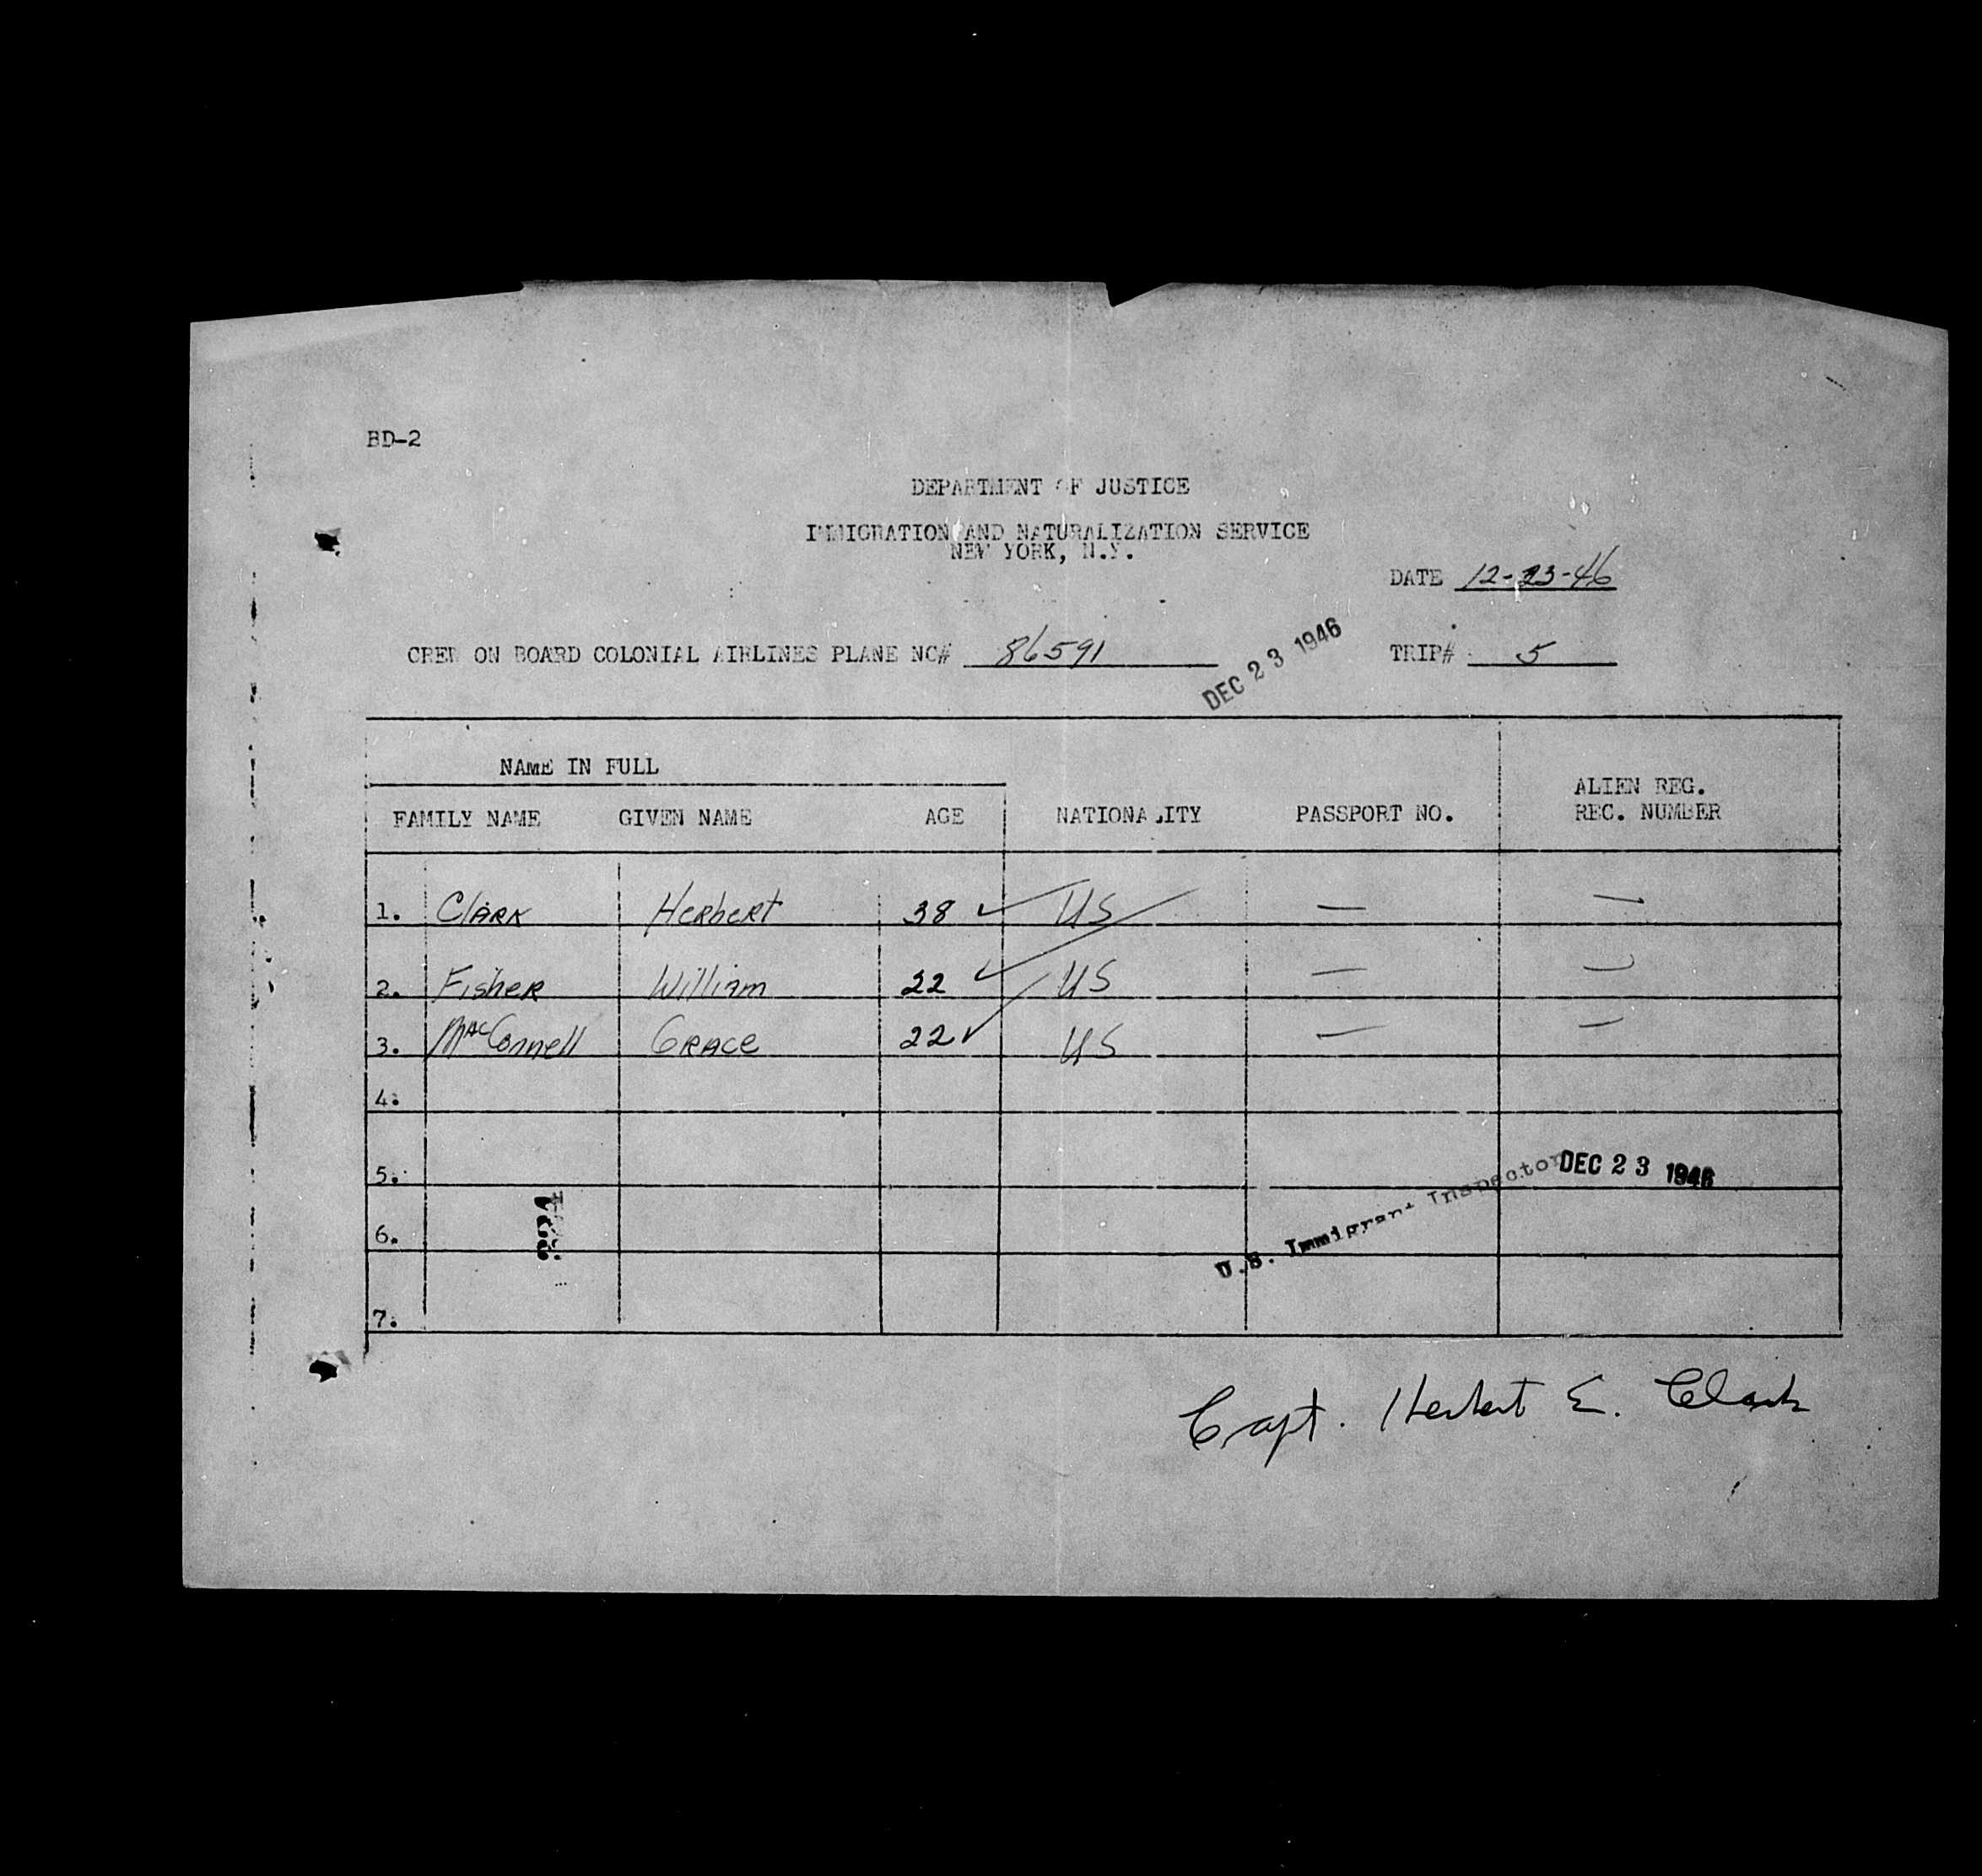 BD-2
DEPARTMENT OF JUSTICE
IMMIGRATION AND NATURALIZATION SERVICE
NEW YORK, N.Y.
DATE 12-23-46
CREW ON BOARD COLONIAL AIRLINES PLANE NC# 86591 TRIP# 5
DEC 23 1946
NAME IN FULL
FAMILY NAME GIVEN NAME AGE NATIONALITY PASSPORT NO. ALIEN REG. REC. NUMBER
1. Clark Herbert 38 US — —
2. Fisher William 22 US — —
3. MacConnell Grace 22 US — —
4.
5.
6.
7.
U.S. Immigrant Inspector DEC 23 1946
Capt. Herbert E. Clark